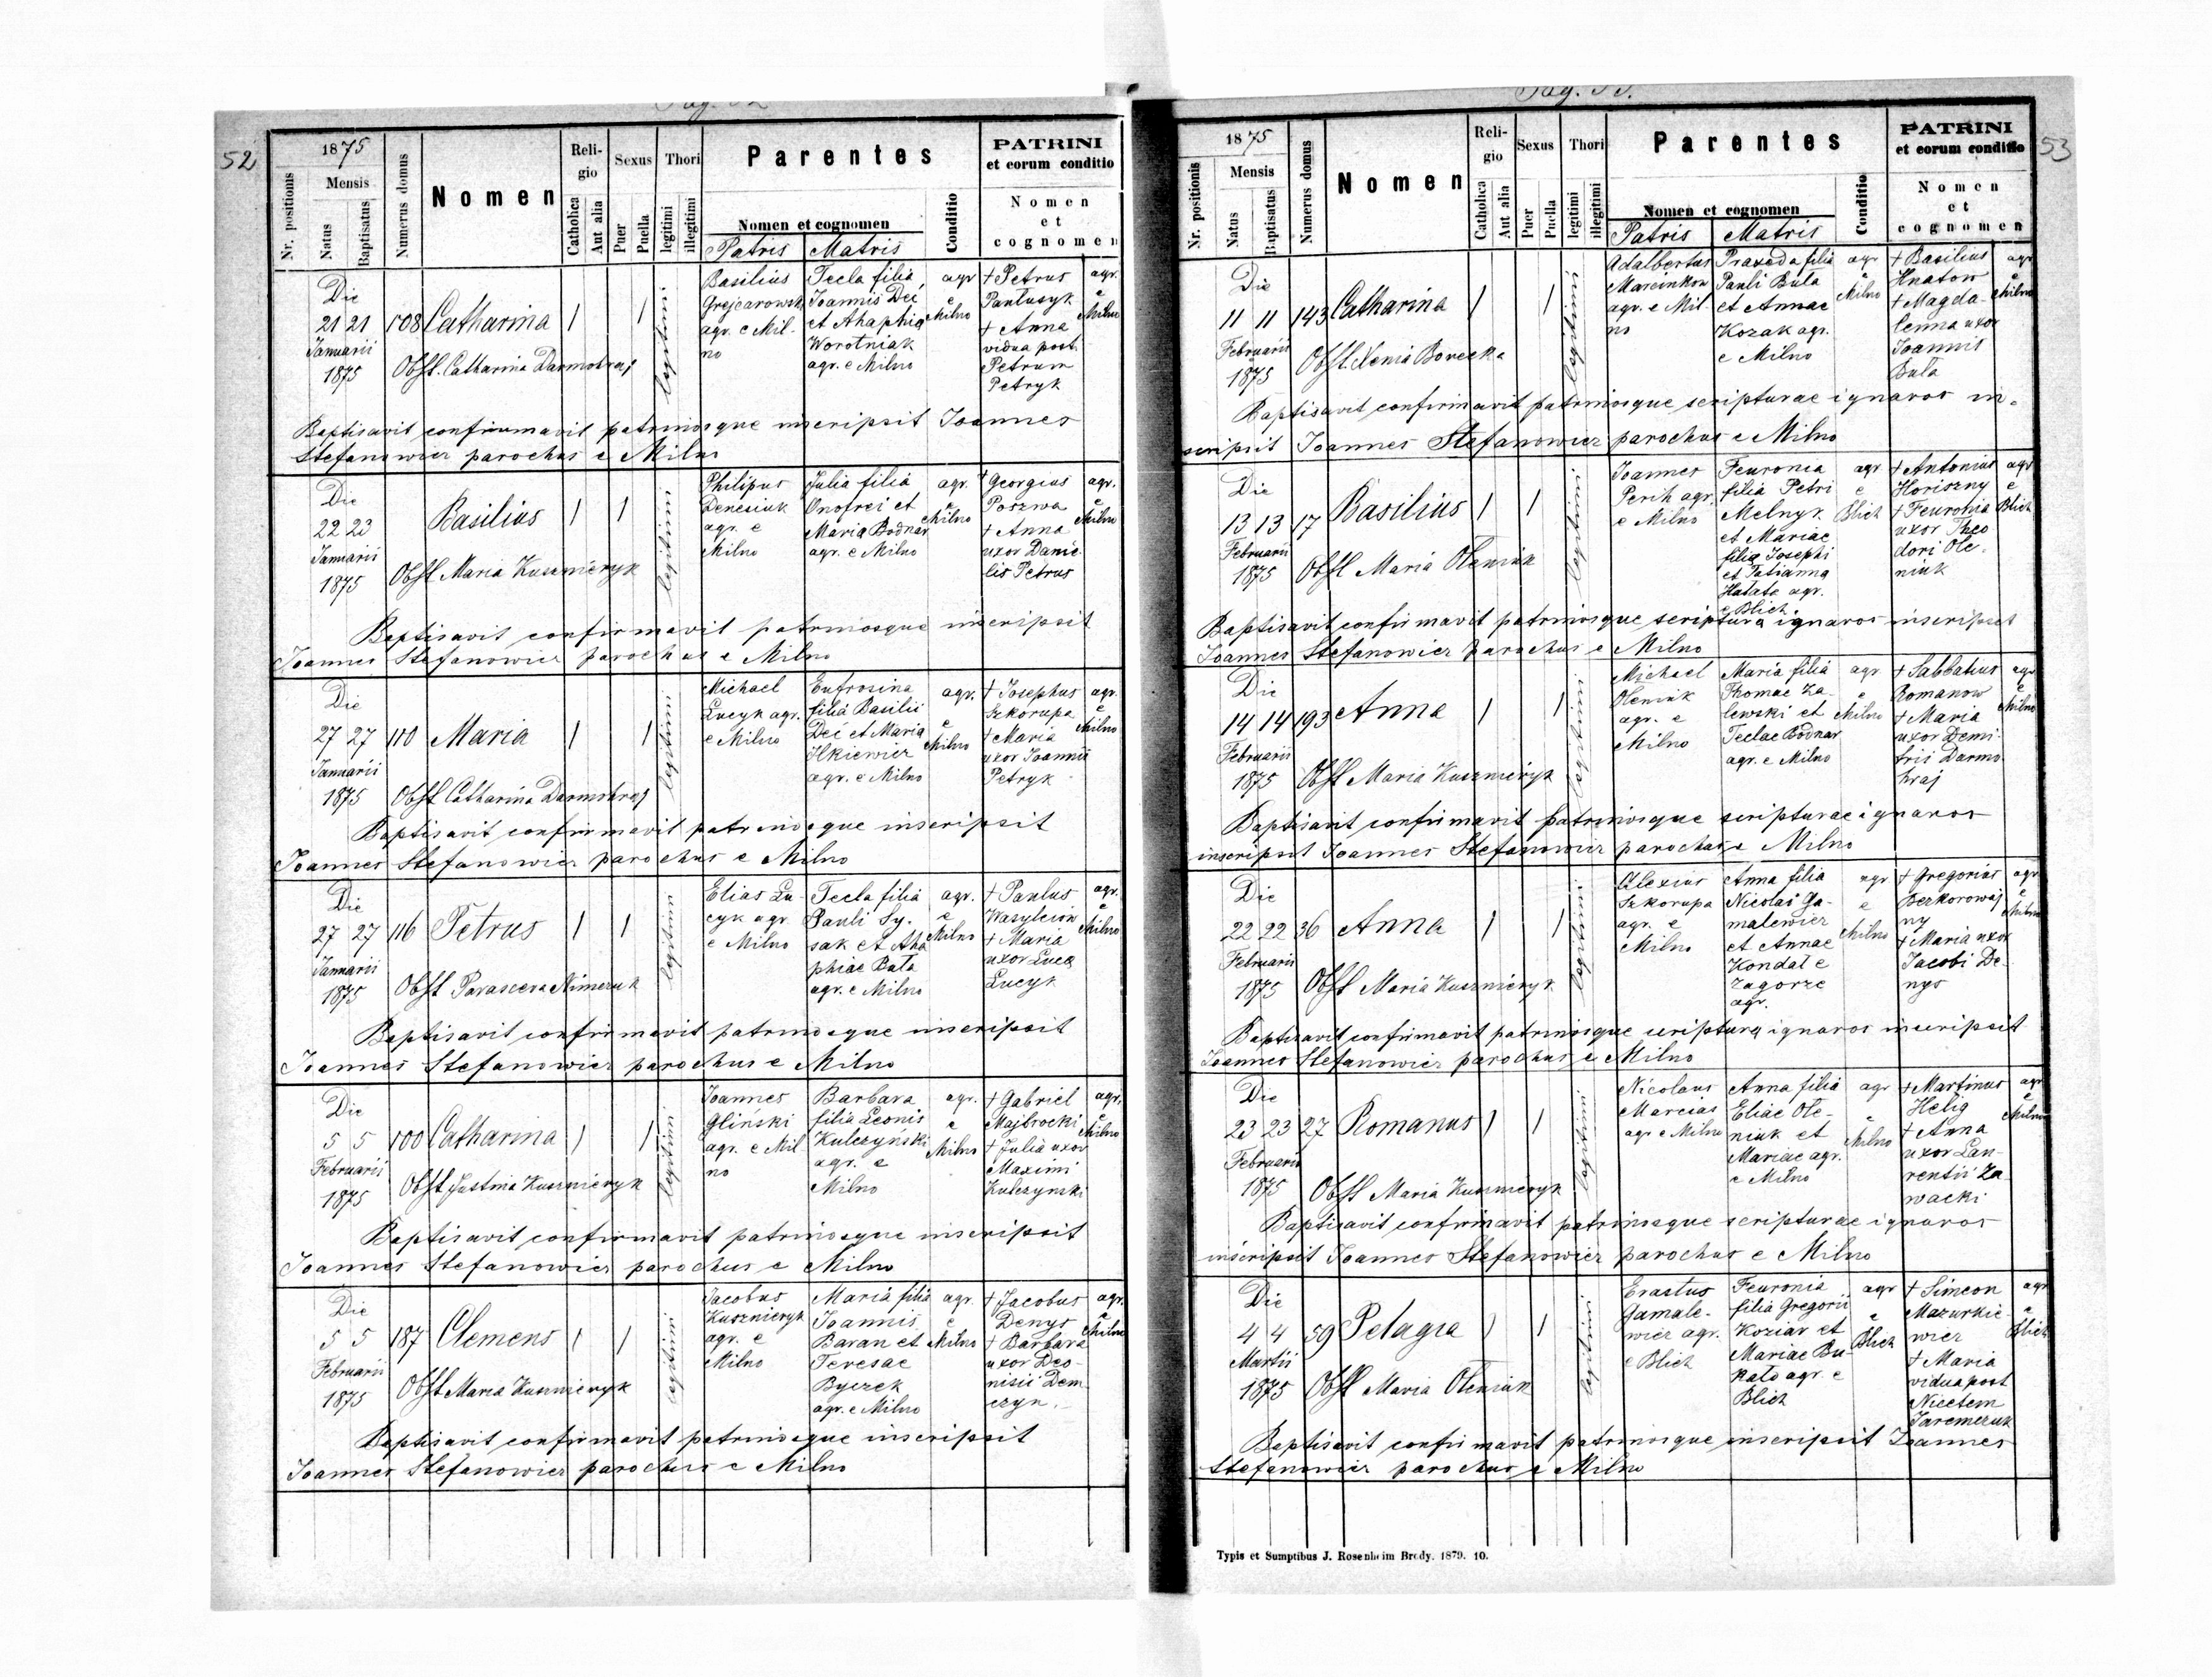 Pag. 52
52
1875
Mensis
Nr. positionis
Natus
Baptisatus
Numerus domus
Nomen
Reli-
gio
Catholica
Aut alia
Sexus
Puer
Puella
Thori
legitimi
illegitimi
Parentes
Nomen et cognomen
Patris
Matris
Conditio
PATRINI
et eorum conditio
Nomen
et
cognomen
Die
21 21
Januarii
1875
108
Catharina
Obst. Catharina Darmohraj
legitimi
Basilius
Grejcarowski
agr. e Mil-
no
Tecla filia
Joannis Dec
et Ahaphia
Worotniak
agr. e Milno
agr
e
Milno
+ Petrus
Pantusyk
+ Anna
vidua post.
Petrum
Petryk
agr.
e
Milno
Baptisavit confirmavit patrinosque inscripsit Joannes
Stefanowicz parochus e Milno
Die
22 23
Januarii
1875
Basilius
Obst Maria Kusznieryk
legitimi
Philipus
Denesiuk
agr. e
Milno
Julia filia
Onofrei et
Maria Bodnar
agr. e Milno
agr.
e
Milno
+ Georgius
Poszwa
+ Anna
uxor Danie-
lis Petrus
agr.
e
Milno
Baptisavit confirmavit patrinosque inscripsit
Joannes Stefanowicz parochus e Milno
Die
27 27
Januarii
1875
110
Maria
Obst Catharina Darmohraj
legitimi
Michael
Lucyk agr.
e Milno
Eufrosina
filia Basilii
Dec et Maria
Ilkiewicz
agr. e Milno
agr.
e
Milno
+ Josephus
Szkorupa
+ Maria
uxor Joannis
Petryk
agr.
e
Milno
Baptisavit confirmavit patrinosque inscripsit
Joannes Stefanowicz parochus e Milno
Die
27 27
Januarii
1875
116
Petrus
Obst Parasceva Nimczuk
legitimi
Elias Lu-
cyk agr
e Milno
Tecla filia
Pauli Sy-
sak et Aha
phiae Bula
agr. e Milno
agr.
e
Milno
+ Paulus
Wasylciow
+ Maria
uxor Luca
Lucyk
agr.
e
Milno
Baptisavit confirmavit patrinosque inscripsit
Joannes Stefanowicz parochus e Milno
Die
5 5
Februarii
1875
100
Catharina
Obst Justina Kusznieryk
legitimi
Joannes
Gliński
agr. e Mil
no
Barbara
filia Leonis
Kulczynski
agr. e
Milno
agr.
e
Milno
+ Gabriel
Majbrocki
+ Julia uxor
Maximi
Kulczynski
agr.
e
Milno
Baptisavit confirmavit patrinosque inscripsit
Joannes Stefanowicz parochus e Milno
Die
5 5
Februarii
1875
187
Clemens
Obst Maria Kusznieryk
legitimi
Jacobus
Kusznieryk
agr. e
Milno
Maria filia
Joannis
Baran et
Teresae
Byczek
agr. e Milno
agr.
e
Milno
+ Jacobus
Denys
+ Barbara
uxor Deo-
nisii Dem
czyn.
agr.
e
Milno
Baptisavit confirmavit patrinosque inscripsit
Joannes Stefanowicz parochus e Milno
Pag. 53.
53
1875
Mensis
Nr. positionis
Natus
Baptisatus
Numerus domus
Nomen
Reli-
gio
Catholica
Aut alia
Sexus
Puer
Puella
Thori
legitimi
illegitimi
Parentes
Nomen et cognomen
Patris
Matris
Conditio
PATRINI
et eorum conditio
Nomen
et
cognomen
Die
11 11
Februarii
1875
143
Catharina
Obst. Xenia Borecka
legitimi
Adalbertus
Marcinkow
agr. e Mil-
no
Praxeda filia
Pauli Bula
et Annae
Kozak agr.
e Milno
agr
e
Milno
+ Basilius
Hnatow
+ Magda-
lenna uxor
Joannis
Bula
agr
e
Milno
Baptisavit confirmavit patrinosque scripturae ignaros in-
scripsit Joannes Stefanowicz parochus e Milno
Die
13 13
Februarii
1875
17
Basilius
Obst Maria Oleniuk
legitimi
Joannes
Perih agr.
e Milno
Feuronia
filia Petri
Melnyk
et Mariae
filia Josephi
et Tatianna
Hatata agr.
e Blich.
agr
e
Blich
+ Antonius
Horiszny
+ Feuronia
uxor Theo
dori Ole-
niuk
agr
e
Blich
Baptisavit confirmavit patrinosque scriptura ignaros inscripsit
Joannes Stefanowicz parochus e Milno
Die
14 14
Februarii
1875
193
Anna
Obst Maria Kuszniéryk
legitimi
Michael
Oleniuk
agr. e
Milno
Maria filia
Thomae Za-
lewski et
Teclae Bodnar
agr. e Milno
agr
e
Milno
+ Sabbatius
Romanow
+ Maria
uxor Demi-
tris Darmo
hraj
agr
e
Milno
Baptisavit confirmavit patrinosque scripturae ignaros
inscripsit Joannes Stefanowicz parochus e Milno
Die
22 22
Februarii
1875
36
Anna
Obst Maria Kuszniéryk
legitimi
Alexius
Szkorupa
agr. e
Milno
Anna filia
Nicolai Ga-
malewicz
et Annae
Kondal e
Zagorze
agr.
agr
e
Milno
+ Gregorius
Bezkorowaj
ny
+ Maria uxor
Jacobi De-
nys
agr
e
Milno
Baptisavit confirmavit patrinosque scriptura ignaros inscripsit
Joannes Stefanowicz parochus e Milno
Die
23 23
Februarii
1875
27
Romanus
Obst Maria Kusznieryk
legitimi
Nicolaus
Marcias
agr e Milno
Anna filia
Eliae Ole-
niuk et
Mariae agr.
e Milno
agr
e
Milno
+ Martinus
Helig
+ Anna
uxor Lau-
rentii Za-
wacki
agr
e
Milno
Baptisavit confirmavit patrinosque scripturae ignaros
inscripsit Joannes Stefanowicz parochus e Milno
Die
4 4
Martii
1875
59
Pelagia
Obst Maria Oleniuk
legitimi
Erastus
Gamale-
wicz agr.
e Blich
Feuronia
filia Gregorii
Koziar et
Mariae Bu-
kato agr. e
Blich
agr
e
Blich
+ Simeon
Mazurkie-
wicz
+ Maria
vidua post
Nicetem
Jaremczuk
agr
e
Blich
Baptisavit confirmavit patrinosque inscripsit Joannes
Stefanowicz parochus e Milno
Typis et Sumptibus J. Rosenheim Brody. 1879. 10.